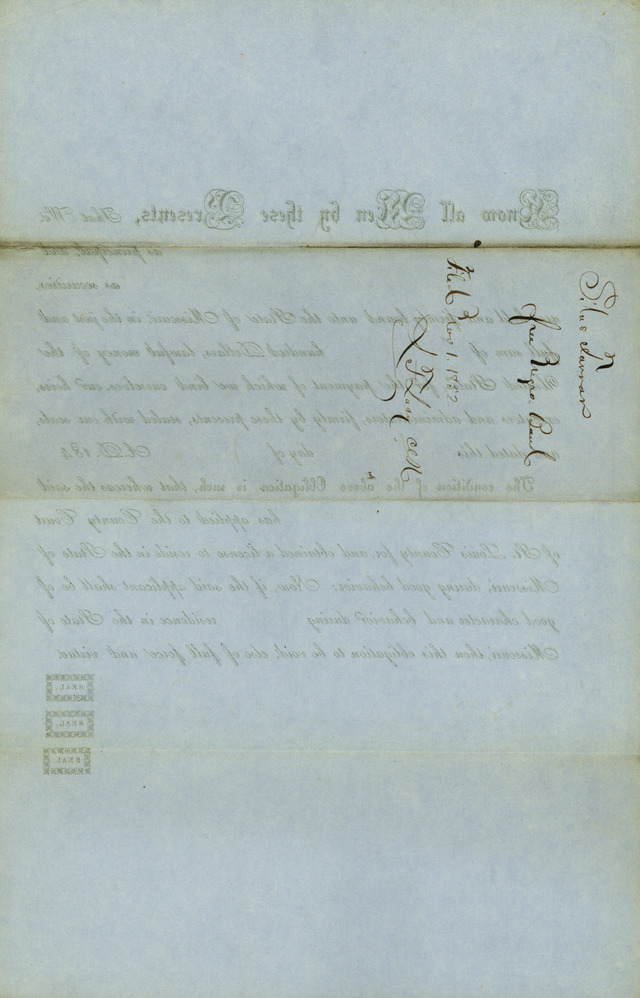 Silas
free Negro Bond
Filed Nov 1. 1852
Clk
Know all Men by these Presents, That We
as principal, and
as securities
and firmly bound unto the State of Missouri, in the just and
sum of hundred Dollars, lawful money of the
States, payment of which we bind ourselves, our heirs,
executors and administrators, firmly by these presents, sealed with our seals,
dated this day of A.D. 184
The condition of the above Obligation is such, that whereas the said
has applied to the County Court
of St. Louis County for, and obtained a license to reside in the State of
Missouri, during good behavior: Now, if the said applicant shall be of
good character and behavior during residence in the State of
Missouri, then this obligation to be void, else of full force and virtue.
SEAL.
SEAL.
SEAL.